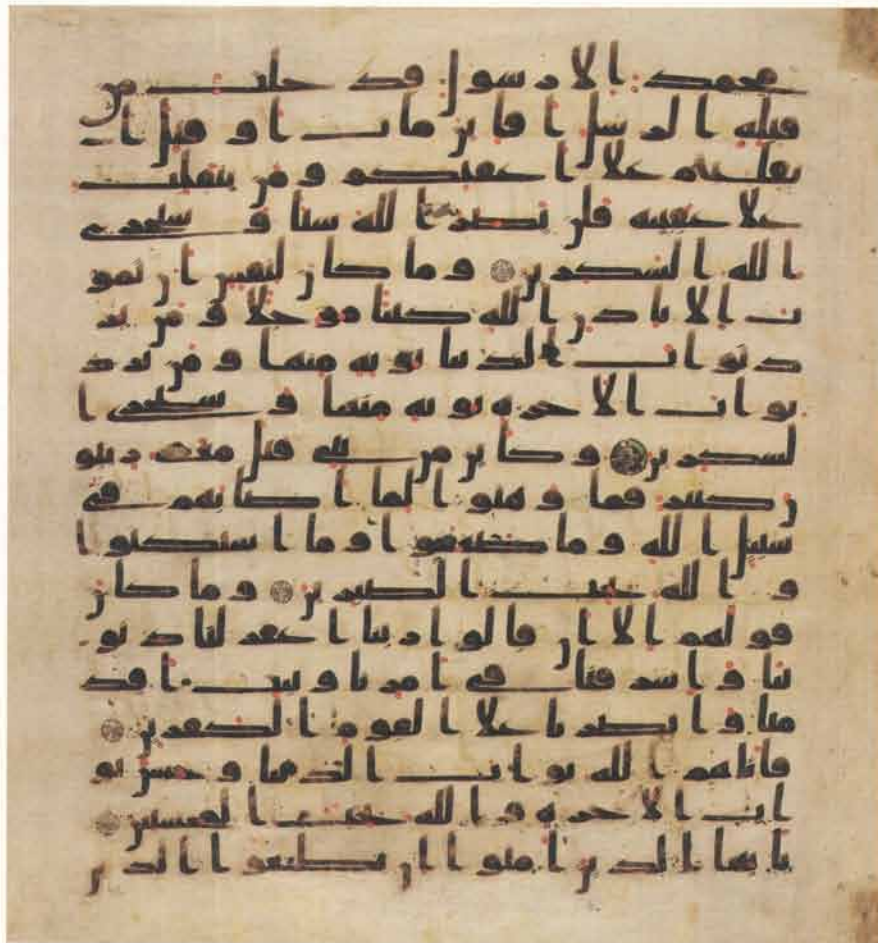 محمد الا رسول قد خلت من
قبله الرسل افاين مات او قتل ا
نقلبتم علا اعقبكم و من ينقلب
علا عقبيه فلن يضر الله شيا و سيجزي
الله الشكرين و ما كان لنفس ان تمو
ت الا باذن الله كتبا موجلا و من ير
د ثواب الدنيا نوته منها و من يرد
ثواب الاخرة نوته منها و سنجزي ا
لشكرين و كاين من نبي قتل معه ربيو
ن كثير فما وهنوا لما اصابهم في
سبيل الله و ما ضعفوا و ما استكنوا
و الله يحب الصبرين و ما كان
قولهم الا ان قالوا ربنا اغفر لنا ذنو
بنا و اسرفنا في امرنا و ثبت اقد
منا و انصرنا علا القوم الكفرين
فاتاهم الله ثواب الدنيا و حسن ثو
اب الاخرة و الله يحب المحسنين
يايها الذين امنوا ان تطيعوا الذين